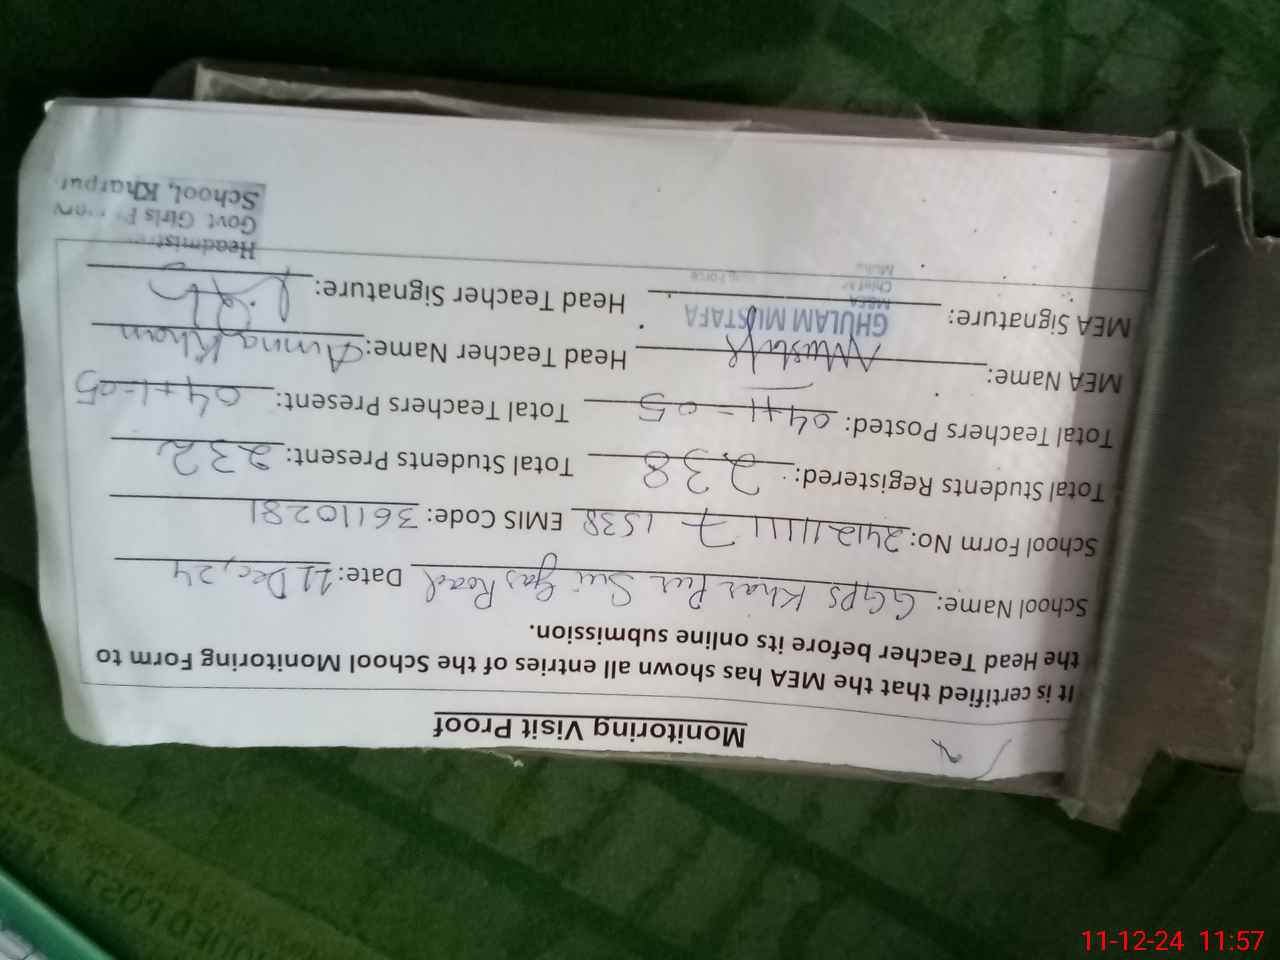 Monitoring Visit Proof
It is certified that the MEA has shown all entries of the School Monitoring Form to
the Head Teacher before its online submission.
School Name: GGPS Khar Pur Sui Gas Road Date: 11 Dec, 24
School Form No: 24121111 7 1538 EMIS Code: 36110281
Total Students Registered: 238 Total Students Present: 232
Total Teachers Posted: 04+1=05 Total Teachers Present: 04+1=05
MEA Name: Head Teacher Name: Amna Khan
GHULAM MUSTAFA
MEA
MEA Signature: Head Teacher Signature:
Govt Girls
School, Kharpur
11-12-24 11:57